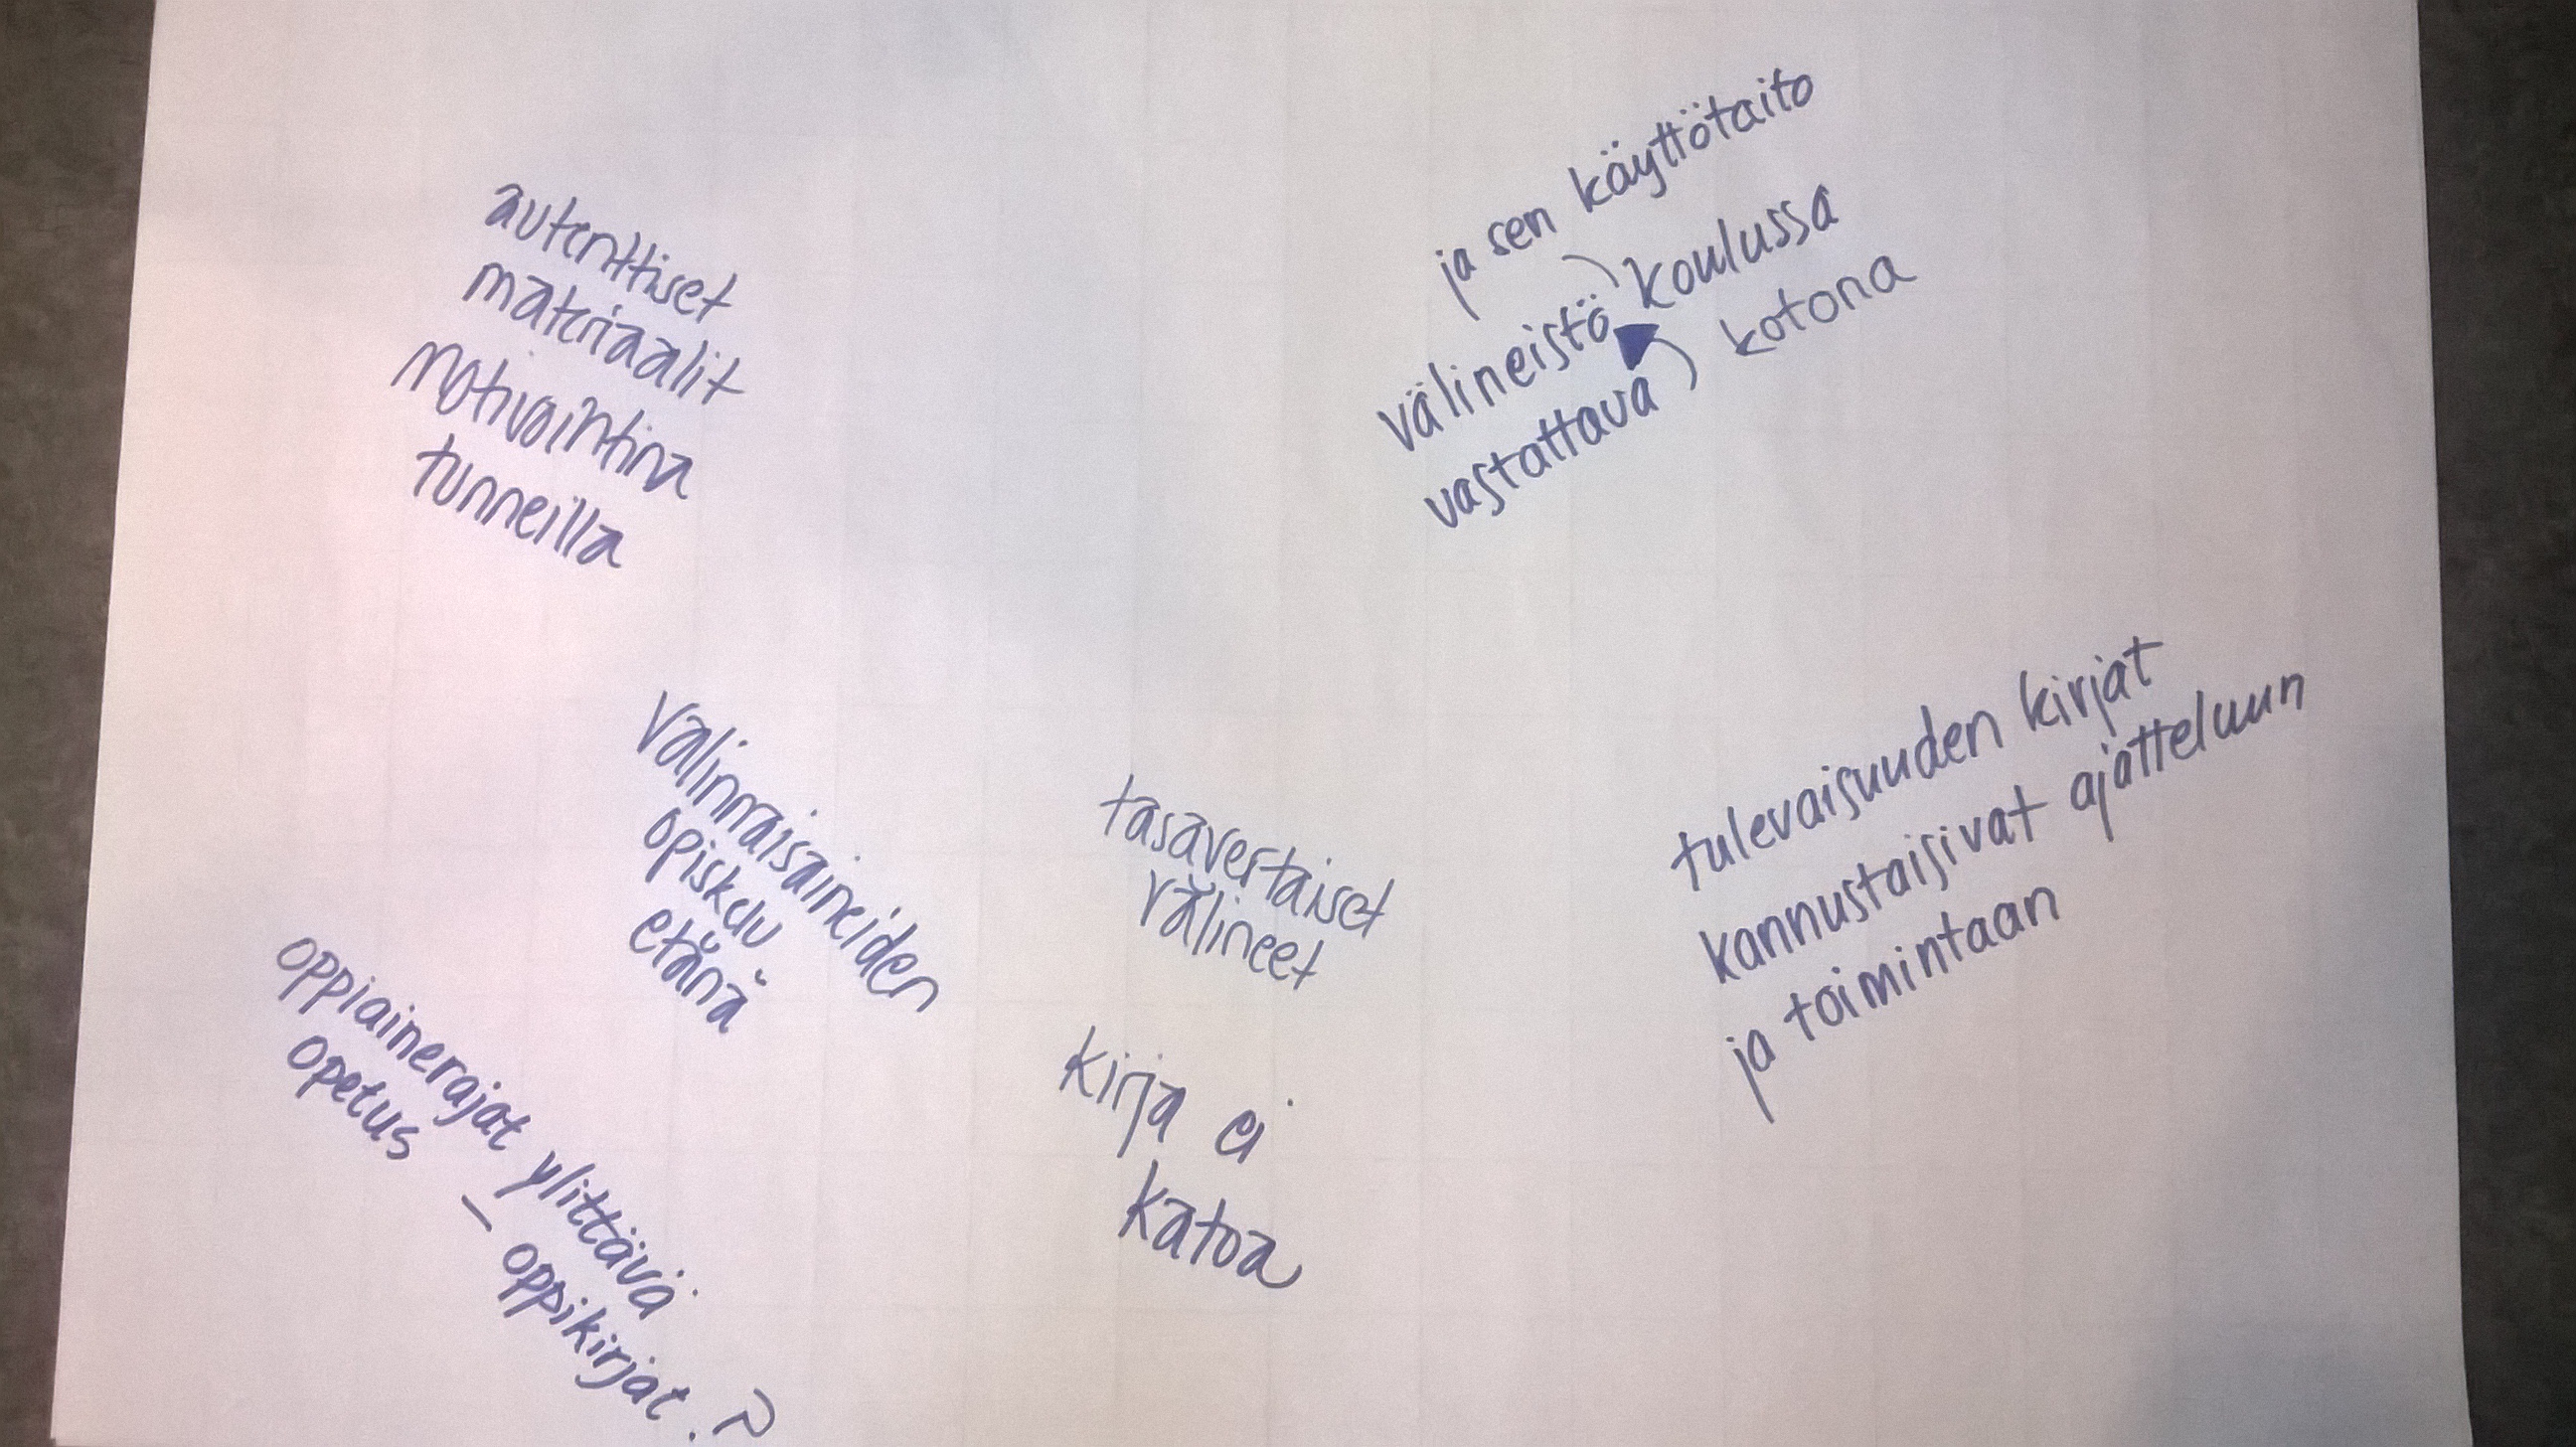 autenttiset
materiaalit
motivointina
tunneilla
ja sen käyttötaito
välineistö koulussa
vastattava kotona
valinnaisaineiden
opiskelu
etänä
tasavertaiset
välineet
tulevaisuuden kirjat
kannustaisivat ajatteluun
ja toimintaan
oppiainerajat ylittävä
opetus
– oppikirjat.?
kirja ei
katoa